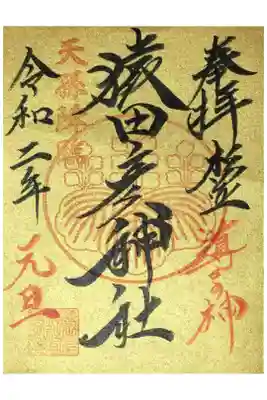 奉拝
神
猿田彦神社
天孫降臨
令和二年
元旦